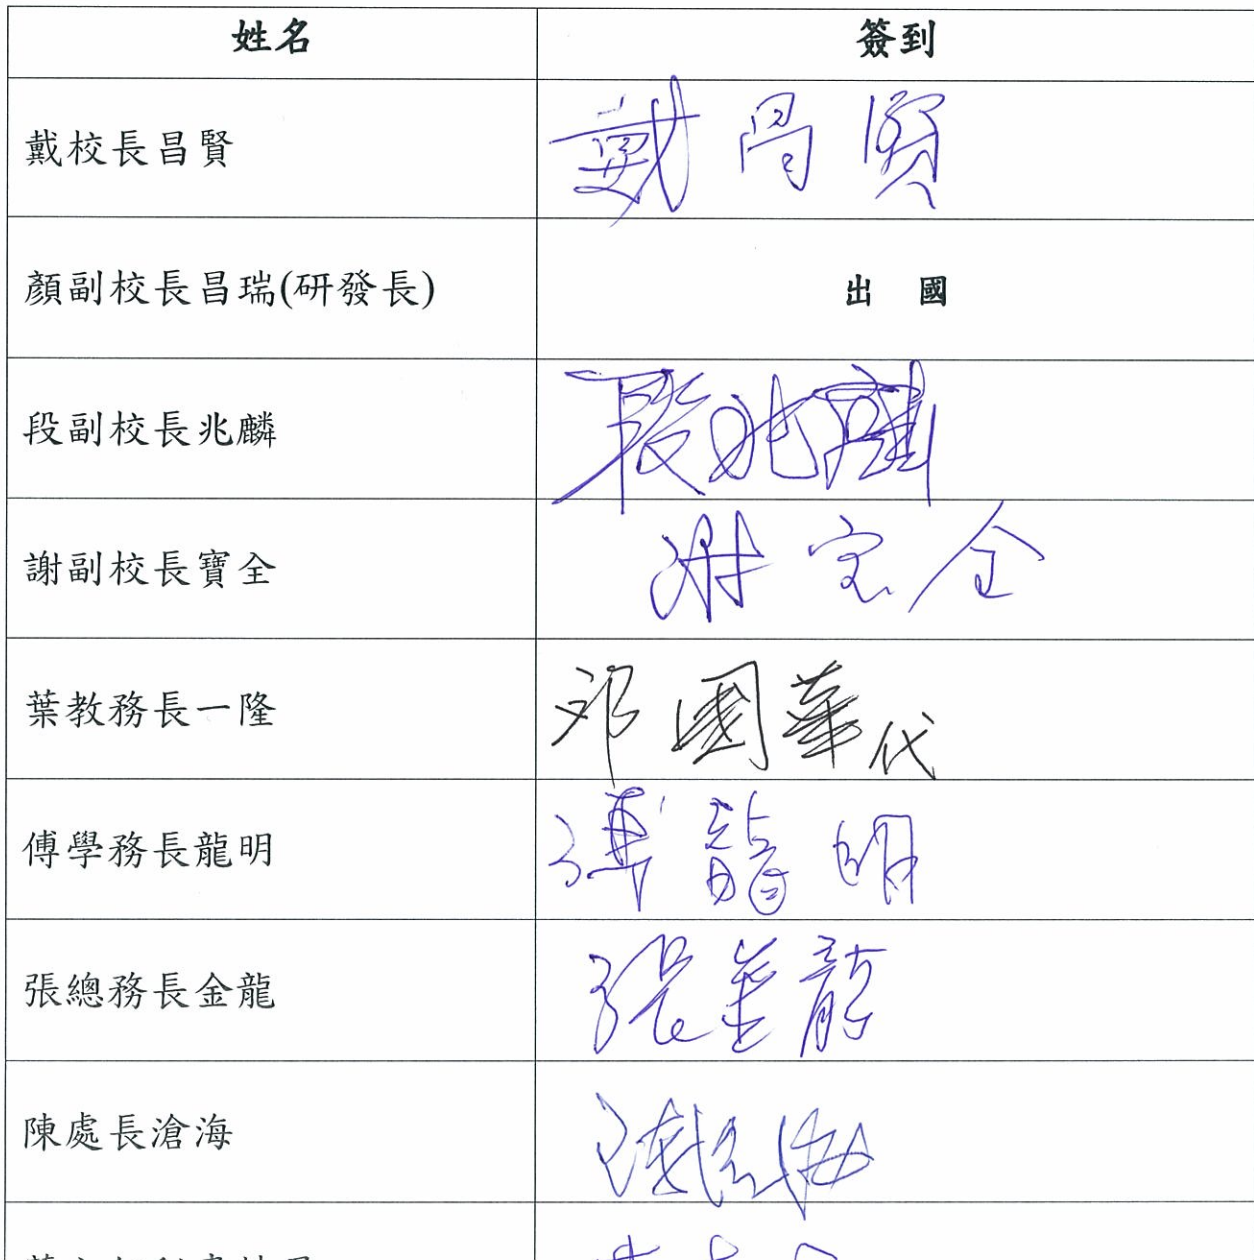 姓名 簽到
戴校長昌賢 戴昌賢
顏副校長昌瑞(研發長) 出 國
段副校長兆麟 段兆麟
謝副校長寶全 謝宝全
葉教務長一隆 邓國華代
傅學務長龍明 傅龍明
張總務長金龍 張金龍
陳處長滄海 陳滄海